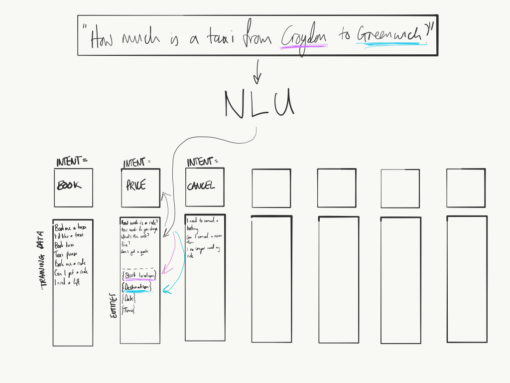 "How much is a taxi from Croydon to Greenwich?"
NLU
INTENT=
BOOK
INTENT=
PRICE
INTENT=
CANCEL
TRAINING DATA
Book me a taxi
I'd like a taxi
Book taxi
Taxi please
Book me a ride
Can I get a ride
I need a lift
How much is a ride?
How much do you charge
What's the rate?
Can I get a quote
I need to cancel a
booking
Can I cancel a
I no longer need my
ride
ENTITIES
{Start location}
{Destination}
{Date}
{Time}